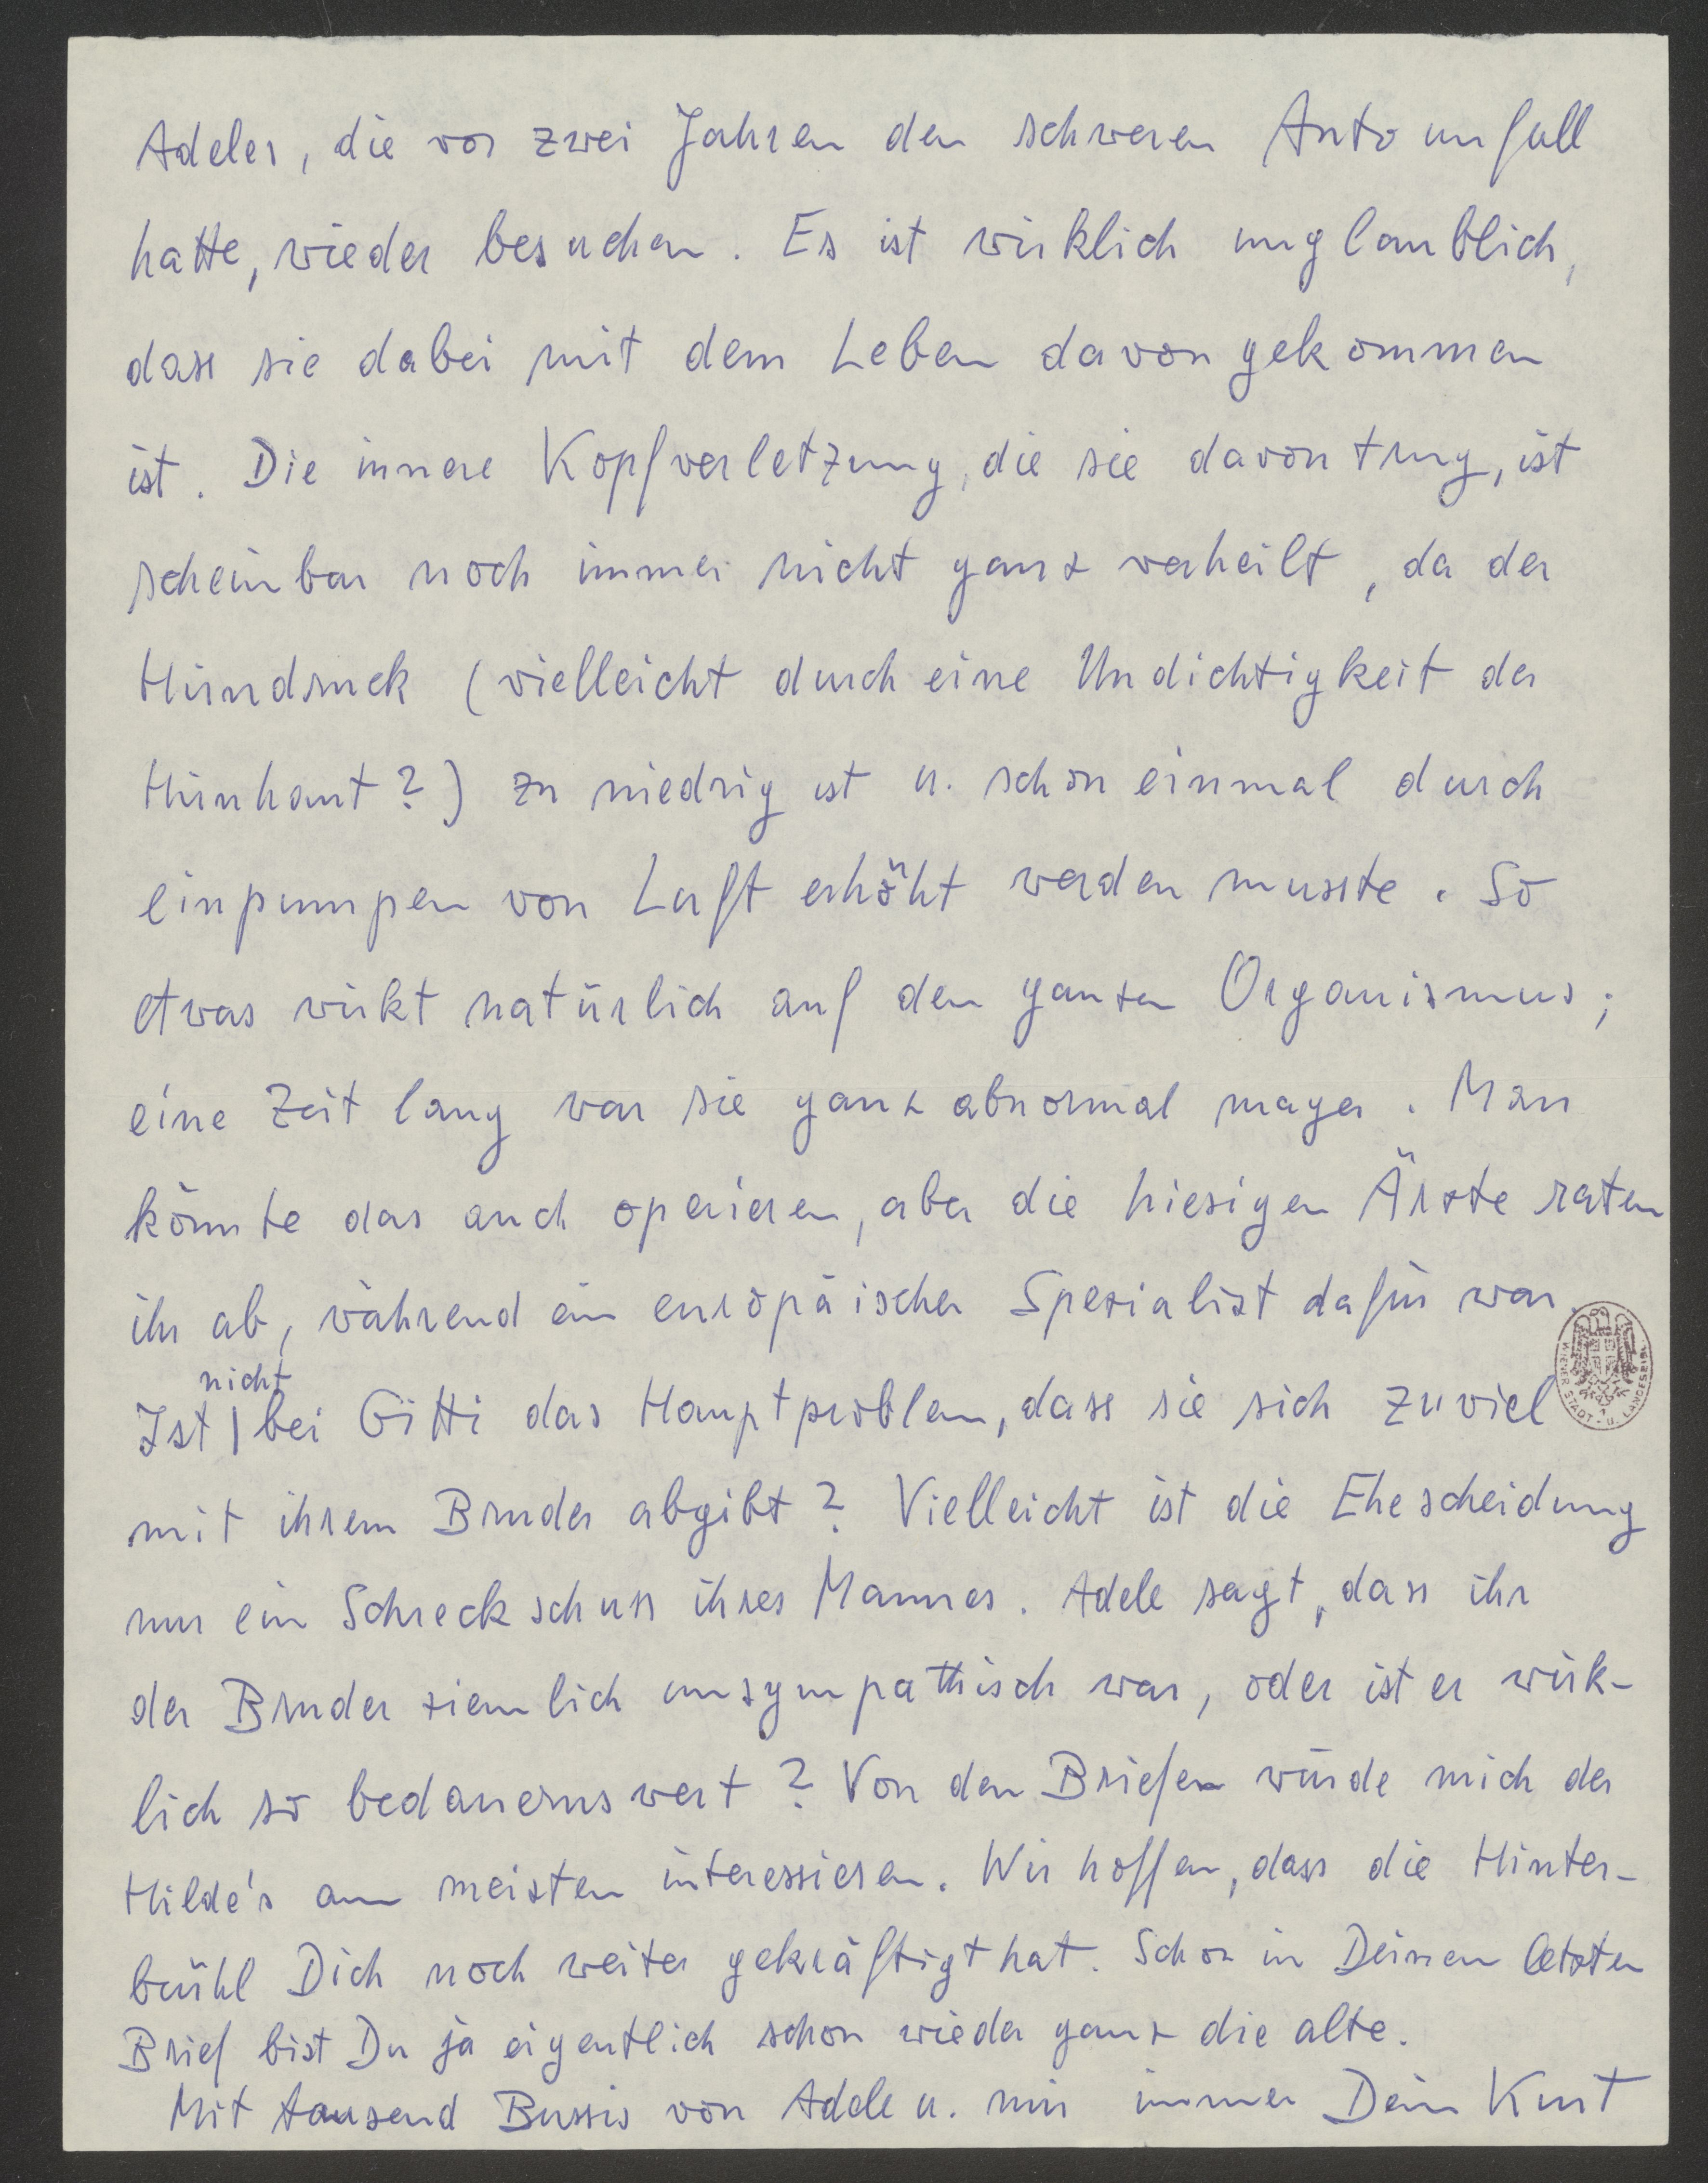 Adeles, die vor zwei Jahren den schweren Autounfall
hatte, wieder besuchen. Es ist wirklich unglaublich,
dass sie dabei mit dem Leben davongekommen
ist. Die innere Kopfverletzung, die sie davontrug, ist
scheinbar noch immer nicht ganz verheilt, da der
Hirndruck (vielleicht durch eine Undichtigkeit der
Hirnhaut?) zu niedrig ist u. schon einmal durch
einpumpen von Luft erhöht werden musste. So
etwas wirkt natürlich auf den ganzen Organismus;
eine Zeit lang war sie ganz abnormal mager. Man
könnte das auch operieren, aber die hiesigen Ärzte raten
ihr ab, während ein europäischer Spezialist dafür war.
nicht
Ist | bei Gitti das Hauptproblem, dass sie sich zuviel
mit ihrem Bruder abgibt? Vielleicht ist die Ehescheidung
nur ein Schreckschuss ihres Mannes. Adele sagt, dass ihr
der Bruder ziemlich unsympathisch war, oder ist er wirk-
lich so bedauernswert? Von den Briefen würde mich der
Hilde's am meisten interessieren. Wir hoffen, dass die Hinter-
brühl Dich noch weiter gekräftigt hat. Schon in Deinem letzten
Brief bist Du ja eigentlich schon wieder ganz die alte.
Mit tausend Bussis von Adele u. mir immer Dein Kurt
WIENER STADT- U. LANDESBIBL.